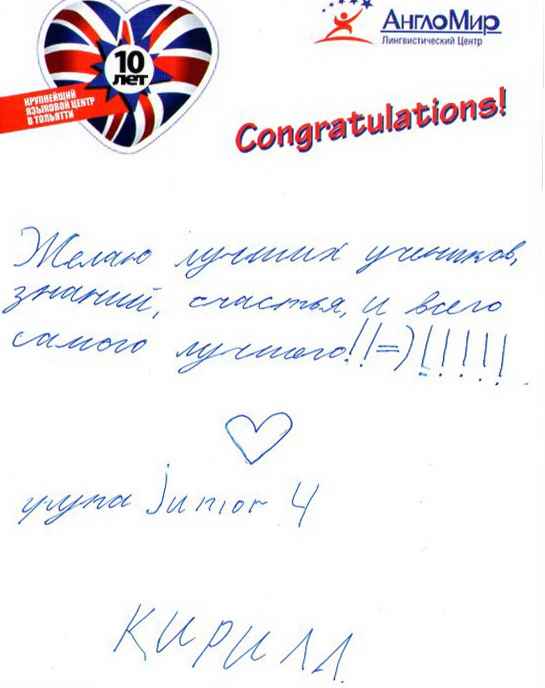 10
лет
КРУПНЕЙШИЙ
ЯЗЫКОВОЙ ЦЕНТР
В ТОЛЬЯТТИ
АнглоМир
Лингвистический Центр
Congratulations!
Желаю лучших учеников,
знаний, счастья, и всего
самого лучшего!!=)!!!!!
група Junior 4
Кирилл.